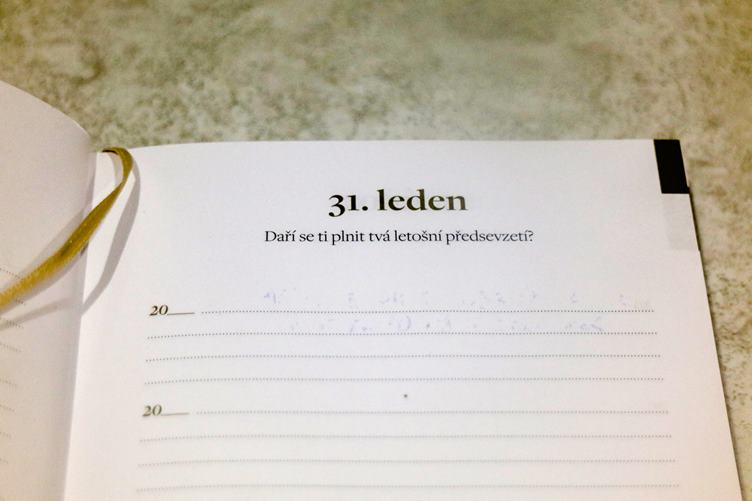 31. leden
Daří se ti plnit tvá letošní předsevzetí?
20___
20___